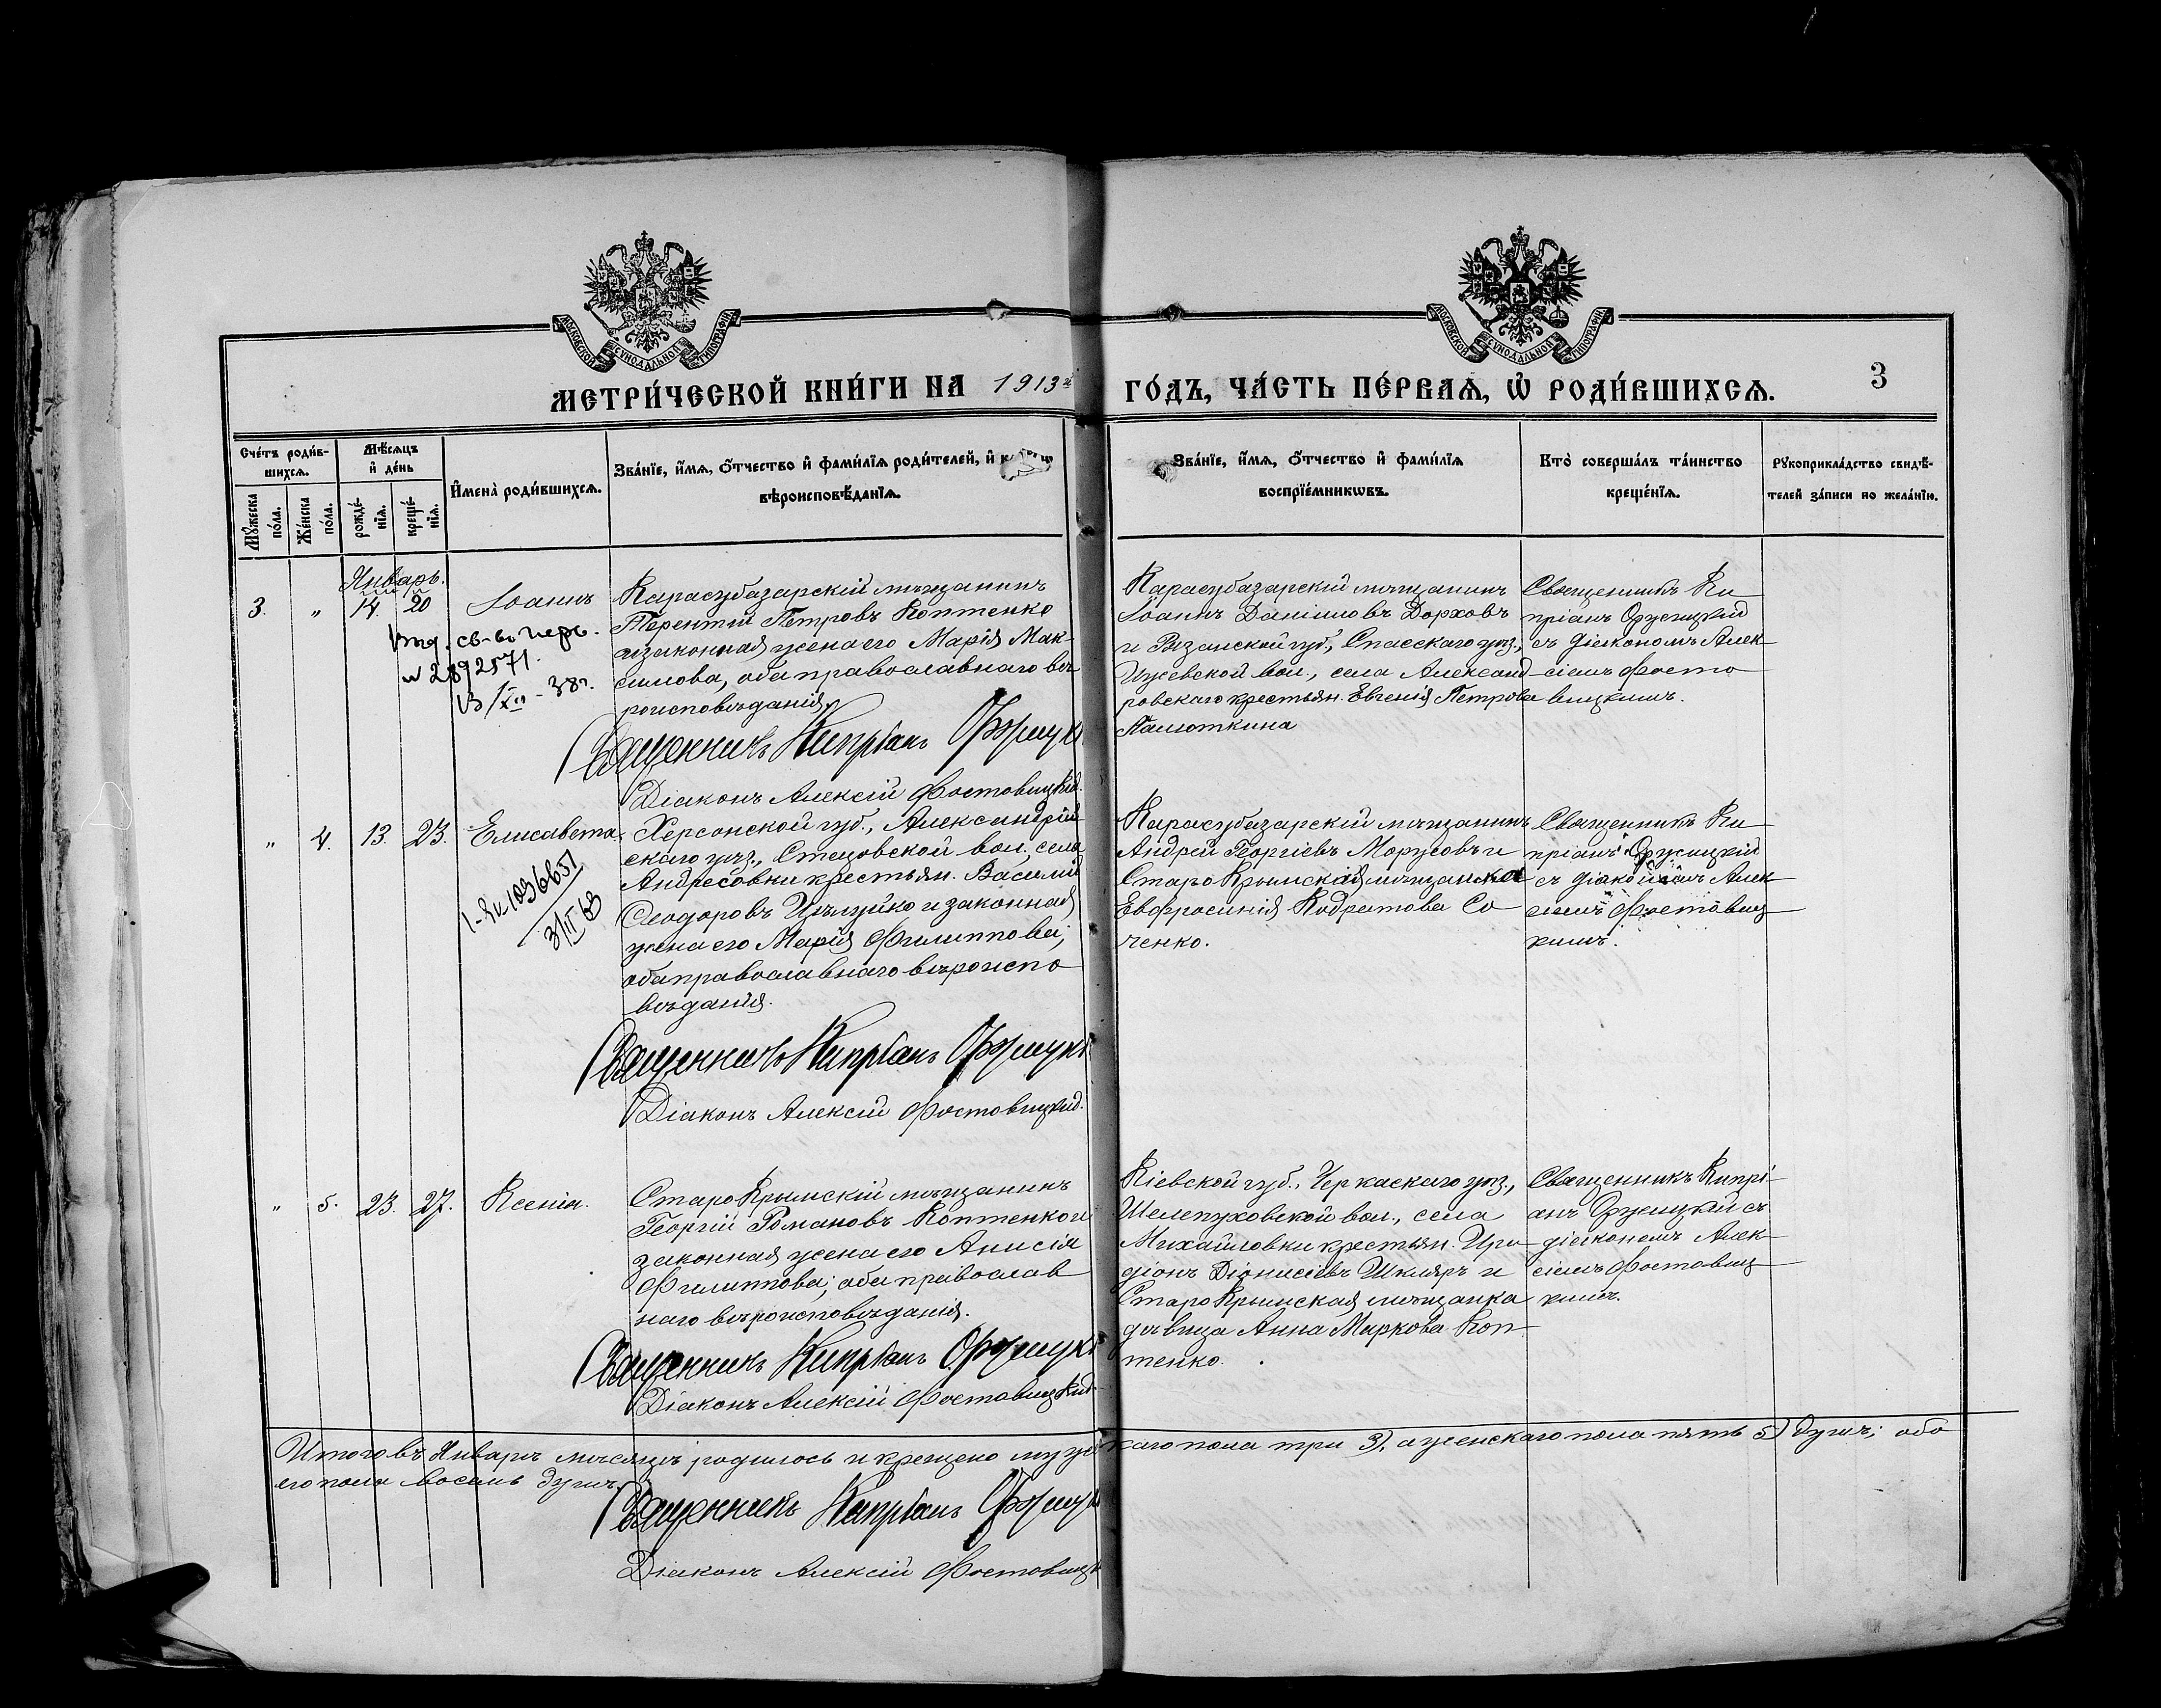 МОСКОВСКОЙ СУНОДАЛЬНОЙ ТИПОГРАФІИ
МОСКОВСКОЙ СУНОДАЛЬНОЙ ТИПОГРАФІИ
МЕТРИ́ЧЕСКОЙ КНИ́ГИ НА 1913й ГО́ДЪ, ЧА́СТЬ ПЕ́РВАѦ, Ѡ҆ РОДИ́ВШИХСѦ.
3
Сче́тъ роди́в-
шихсѧ.
Мꙋжеска по́ла.
Же́нска по́ла.
Мѣ́сѧцъ
и҆ де́нь
рожде́-
нїѧ.
креще́-
нїѧ.
И҆мена̀ роди́вшихсѧ.
Зва́нїе, и҆́мѧ, о҆́тчество и҆ фами́лїѧ роди́телей, и҆
вѣроисповѣ́данїѧ.
Зва́нїе, и҆́мѧ, о҆́тчество и҆ фами́лїѧ
воспрїе́мникѡвъ.
Кто̀ соверша́лъ та́инство
креще́нїѧ.
Рꙋкоприкла́дство свидѣ́-
телей за́писи по жела́нїю.
Январь.
3. " 14 20 Іоаннъ
Карасубазарскій мѣщанинъ
Терентій Петровъ Коптенко
и законная жена его Марія Мак-
симова, оба православнаго вѣ
роисповѣданія
Священникъ Кипріанъ
Діаконъ Алексій Фостовицкій.
Карасубазарскій мѣщанинъ
Іоаннъ Даніиловъ Дорховъ
и Рязанской губ., Спасскаго уѣз.,
Ижевской вол., села Александ-
ровскаго крестьян. Евгенія Петрова
Палоткина
Священникъ Ки
пріанъ
съ діакономъ Алек-
сіемъ Фосто
вицкимъ.
13/XII-38г.
" 4. 13. 23. Елисавета.
Херсонской губ., Александрій
скаго уѣз., Стецовской вол., села
Андресовки крестьян. Василій
Ѳеодоровъ и законная
жена его Марія Филиппова;
оба православнаго вѣроиспо
вѣданія.
Священникъ Кипріанъ
Діаконъ Алексій Фостовицкій.
Карасубазарскій мѣщанинъ
Андрей Георгіевъ Морусовъ и
Старо Крымская мѣщанка
Евфросинія Кодратова Со
ченко.
Священникъ Ки
пріанъ
съ діакономъ Алек
сіемъ Фостовиц
кимъ.
" 5. 23. 27. Ксенія.
Старо Крымскій мѣщанинъ
Георгій Романовъ Коптенко и
законная жена его Анисія
Филиппова; оба православ
наго вѣроисповѣданія.
Священникъ Кипріанъ
Діаконъ Алексій Фостовицкій
Кіевской губ., Черкаскаго уѣз.,
Шелепуховской вол., села
Михайловки крестьян. Ири
діонъ Діонисіевъ Шкляръ и
Старо Крымская мѣщанка
дѣвица Анна Маркова Коп
тенко.
Священникъ Кипрі-
анъ съ
діакономъ Алек-
сіемъ Фостовиц
кимъ.
Итого въ Январѣ мѣсяцѣ родилось и крещено мужскаго пола три 3), а женскаго пола пять 5) душъ; обо
его пола восемь душъ.
Священникъ Кипріанъ
Діаконъ Алексій Фостовицк